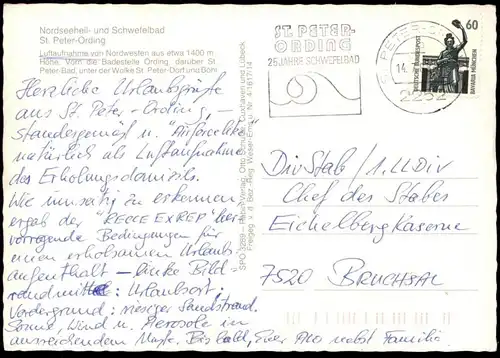 Nordseeheil- und Schwefelbad
St. Peter-Ording
Luftaufnahme von Nordwesten aus etwa 1400 m
Höhe. Vorn die Badestelle Ording, darüber St.
Peter-Bad, unter der Wolke St. Peter-Dorf und Böhl
Herzliche Urlaubsgrüße
aus St. Peter-Ording, –
standesgemäß u. "Aufrechter"
natürlich als Luftaufnahme
des Erholungsdomizils.
Wie unsatig zu erkennen,
ergab der "RECCE EXREP" her-
vorragende Bedingungen für
einen erholsamen Urlaubs-
aufenthalt – linke Bild-
randmitte: Urlaubsort,
Vordergrund: riesiger Sandstrand.
Sonne, Wind u. Aerosole in
ausreichendem Maße. Bis bald, Euer nebst Familie.
SPO 3289 – Rhein-Verlag, Otto Schulze, Cuxhaven und Lübeck
Freigeg. v. d. Bez.-Reg. Weser-Ems u. Nr. 41617/14
ST. PETER-
ORDING
25 JAHRE SCHWEFELBAD
ST. PETER-
14.
2252
60
DEUTSCHE BUNDESPOST
BAVARIA MÜNCHEN
DivStab / 1. LLDiv
Chef des Stabes
Eichelberg Kaserne
7520 BRUCHSAL